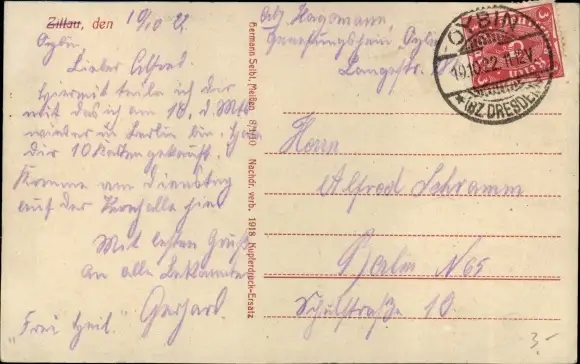 Zittau, den 19/10 22
Oybin,
Lieber Alfred!
Hiermit teile ich dir
mit das ich am 16. d. Mts
wieder in Berlin bin, habe
Dir 10 Karten gekauft.
Komme am Dienstag
auf der
Mit besten Gruß
an alle Bekannten
Gerhard.
"Frei Heil."
Hermann Seibl, Meißen 8/1150 Nachdr. verb. 1918 Kupferdruck-Ersatz
Abs. Hagemann
Genesungsheim Oybin
Langestr.
OYBIN
19.10.22. 11-12V
*(BZ. DRESDEN)
3
Herrn
Alfred Schramm
Berlin N 65
Schulstraße 10.
3.-